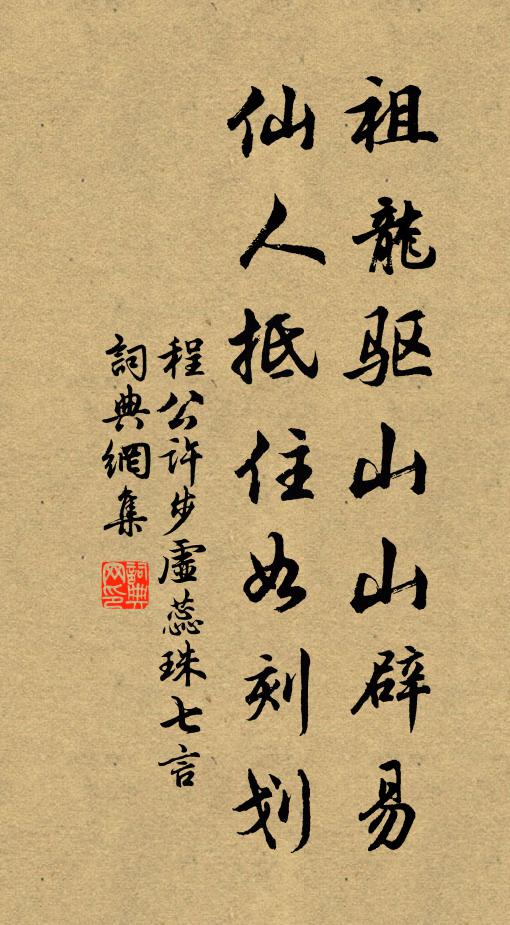 祖龍驱山山辟易
仙人抵住如刻划
程公許步虛蕊珠七言
詞典網集
詞典网印